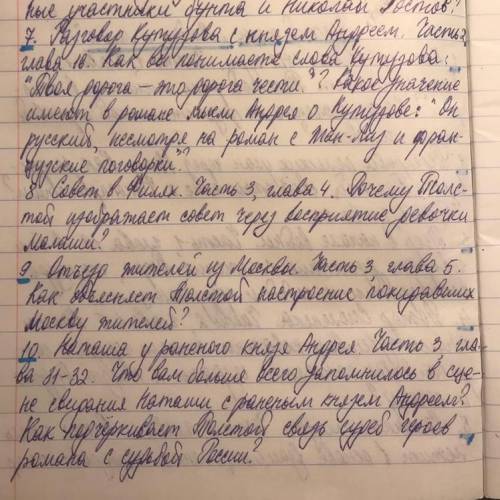 ные участники бунта и Николай Ростов?
7. Разговор Кутузова с князем Андреем. Часть 2,
глава 16. Как вы понимаете слова Кутузова:
"Твоя дорога – это дорога чести."? Какое значение
имеют в романе мысли Андрея о Кутузове: "Он
русский, несмотря на роман с Жанлиз и фран-
цузские поговорки"?
8. Совет в Филях. Часть 3, глава 4. Почему Толс-
той изображает совет через восприятие девочки
Малаши?
9. Отъезд жителей из Москвы. Часть 3, глава 5.
Как объясняет Толстой настроение покидавших
Москву жителей?
10. Наташа у раненого князя Андрея. Часть 3, гла-
ва 31-32. Что вам больше всего запомнилось в сце-
не свидания Наташи с раненым князем Андреем?
Как подчёркивает Толстой связь судеб героев
романа с судьбой России?